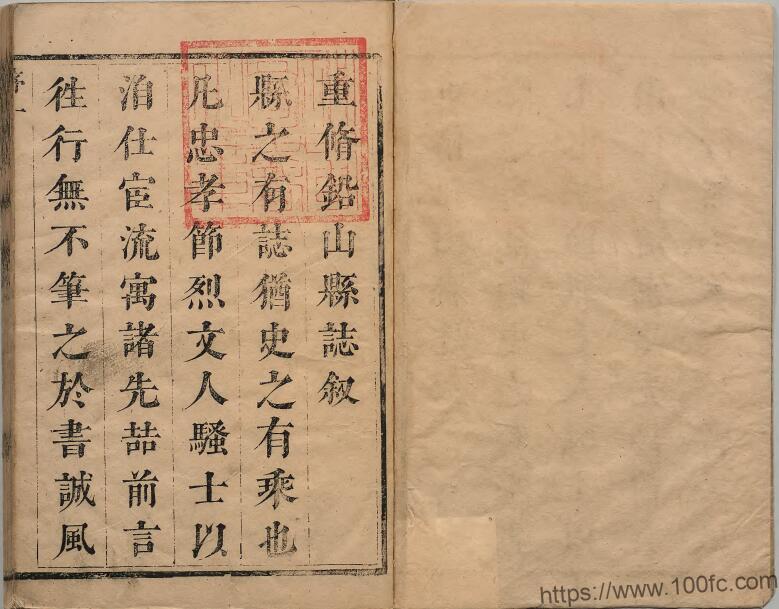 重脩鉛山縣誌叙
縣之有誌猶史之有乘也
凡忠孝節烈文人騷士以
洎仕宦流寓諸先喆前言
徃行無不筆之於書誠風
https://www.100fc.com